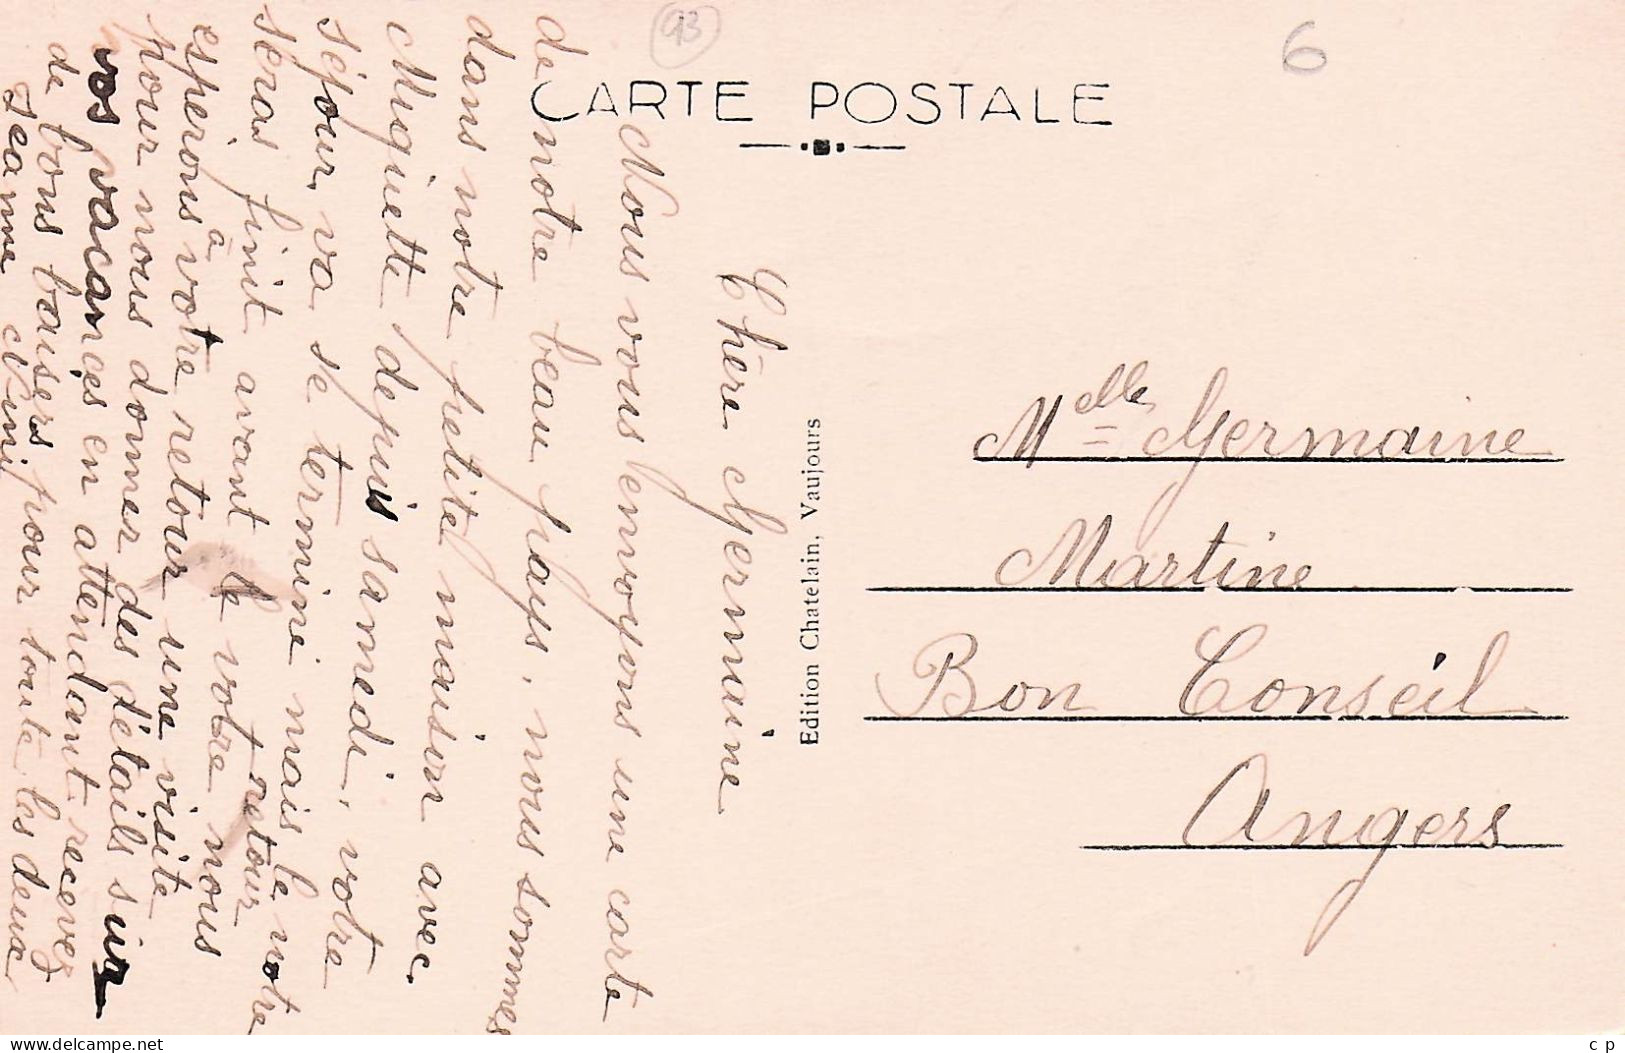 93
6
CARTE POSTALE
Chère Germaine
Nous vous envoyons une carte
de notre beau pays, nous sommes
dans notre petite maison avec
Miquette depuis samedi, votre
séjour va se terminé mais le notre
seras finit avant le votre retour
esperons à votre retour une visite nous
pour nous donner des détails sur
vos vacances en attendant recevez
de bons baisers pour toute les deux
Jeanne
Edition Chatelain, Vaujours
Melle Germaine
Martine
Bon Conseil
Angers
www.delcampe.net
c p